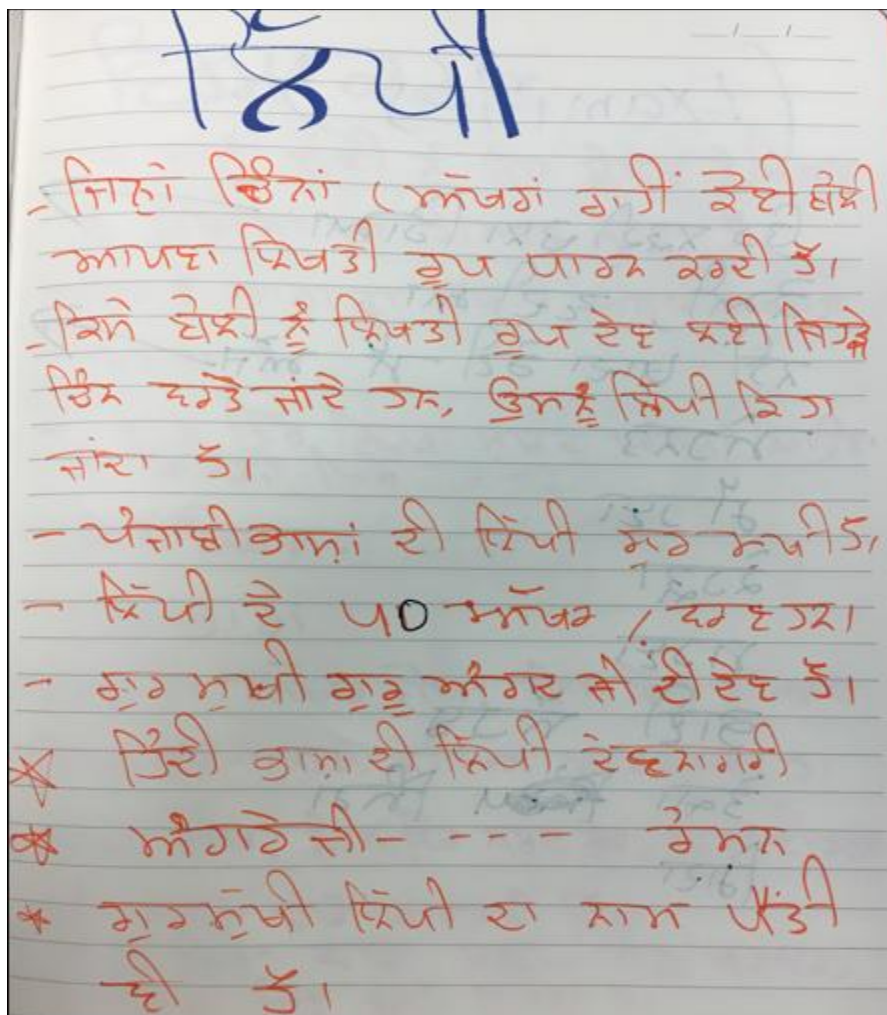 ਲਿੱਪੀ
- ਜਿਨਾਂ ਚਿੰਨਾਂ (ਅੱਖਰਾਂ ਰਾਹੀਂ ਕੋਈ ਬੋਲੀ
ਆਪਣਾ ਲਿਖਤੀ ਰੂਪ ਧਾਰਨ ਕਰਦੀ ਹੈ।
- ਕਿਸੇ ਬੋਲੀ ਨੂੰ ਲਿਖਤੀ ਰੂਪ ਦੇਣ ਲਈ ਜਿਹੜੇ
ਚਿੰਨ ਵਰਤੇ ਜਾਂਦੇ ਹਨ, ਉਸਨੂੰ ਲਿੱਪੀ ਕਿਹਾ
ਜਾਂਦਾ ਹੈ।
- ਪੰਜਾਬੀ ਭਾਸ਼ਾਂ ਦੀ ਲਿੱਪੀ ਗੁਰਮੁਖੀ ਹੈ,
- ਲਿੱਪੀ ਦੇ ੫੦ ਅੱਖਰ / ਵਰਣ ਹਨ।
- ਗੁਰਮੁਖੀ ਗੁਰੂ ਅੰਗਦ ਜੀ ਦੀ ਦੇਣ ਹੈ।
* ਹਿੰਦੀ ਭਾਸ਼ਾ ਦੀ ਲਿੱਪੀ ਦੇਵਨਾਗਰੀ
* ਅੰਗਰੇਜੀ - - - - ਰੋਮਨ
* ਗੁਰਮੁੱਖੀ ਲਿੱਪੀ ਦਾ ਨਾਮ ਪੈਂਤੀ
ਵੀ ਹੈ।